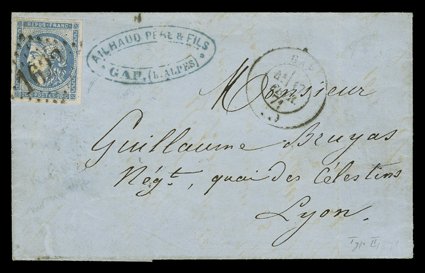 REPUB. FRANC.
AILHAUD PÈRE & FILS
GAP. (h. ALPES)
71
Monsieur
Guillaume Bruyas
Négt., quai des Célestins
Lyon.
Type II